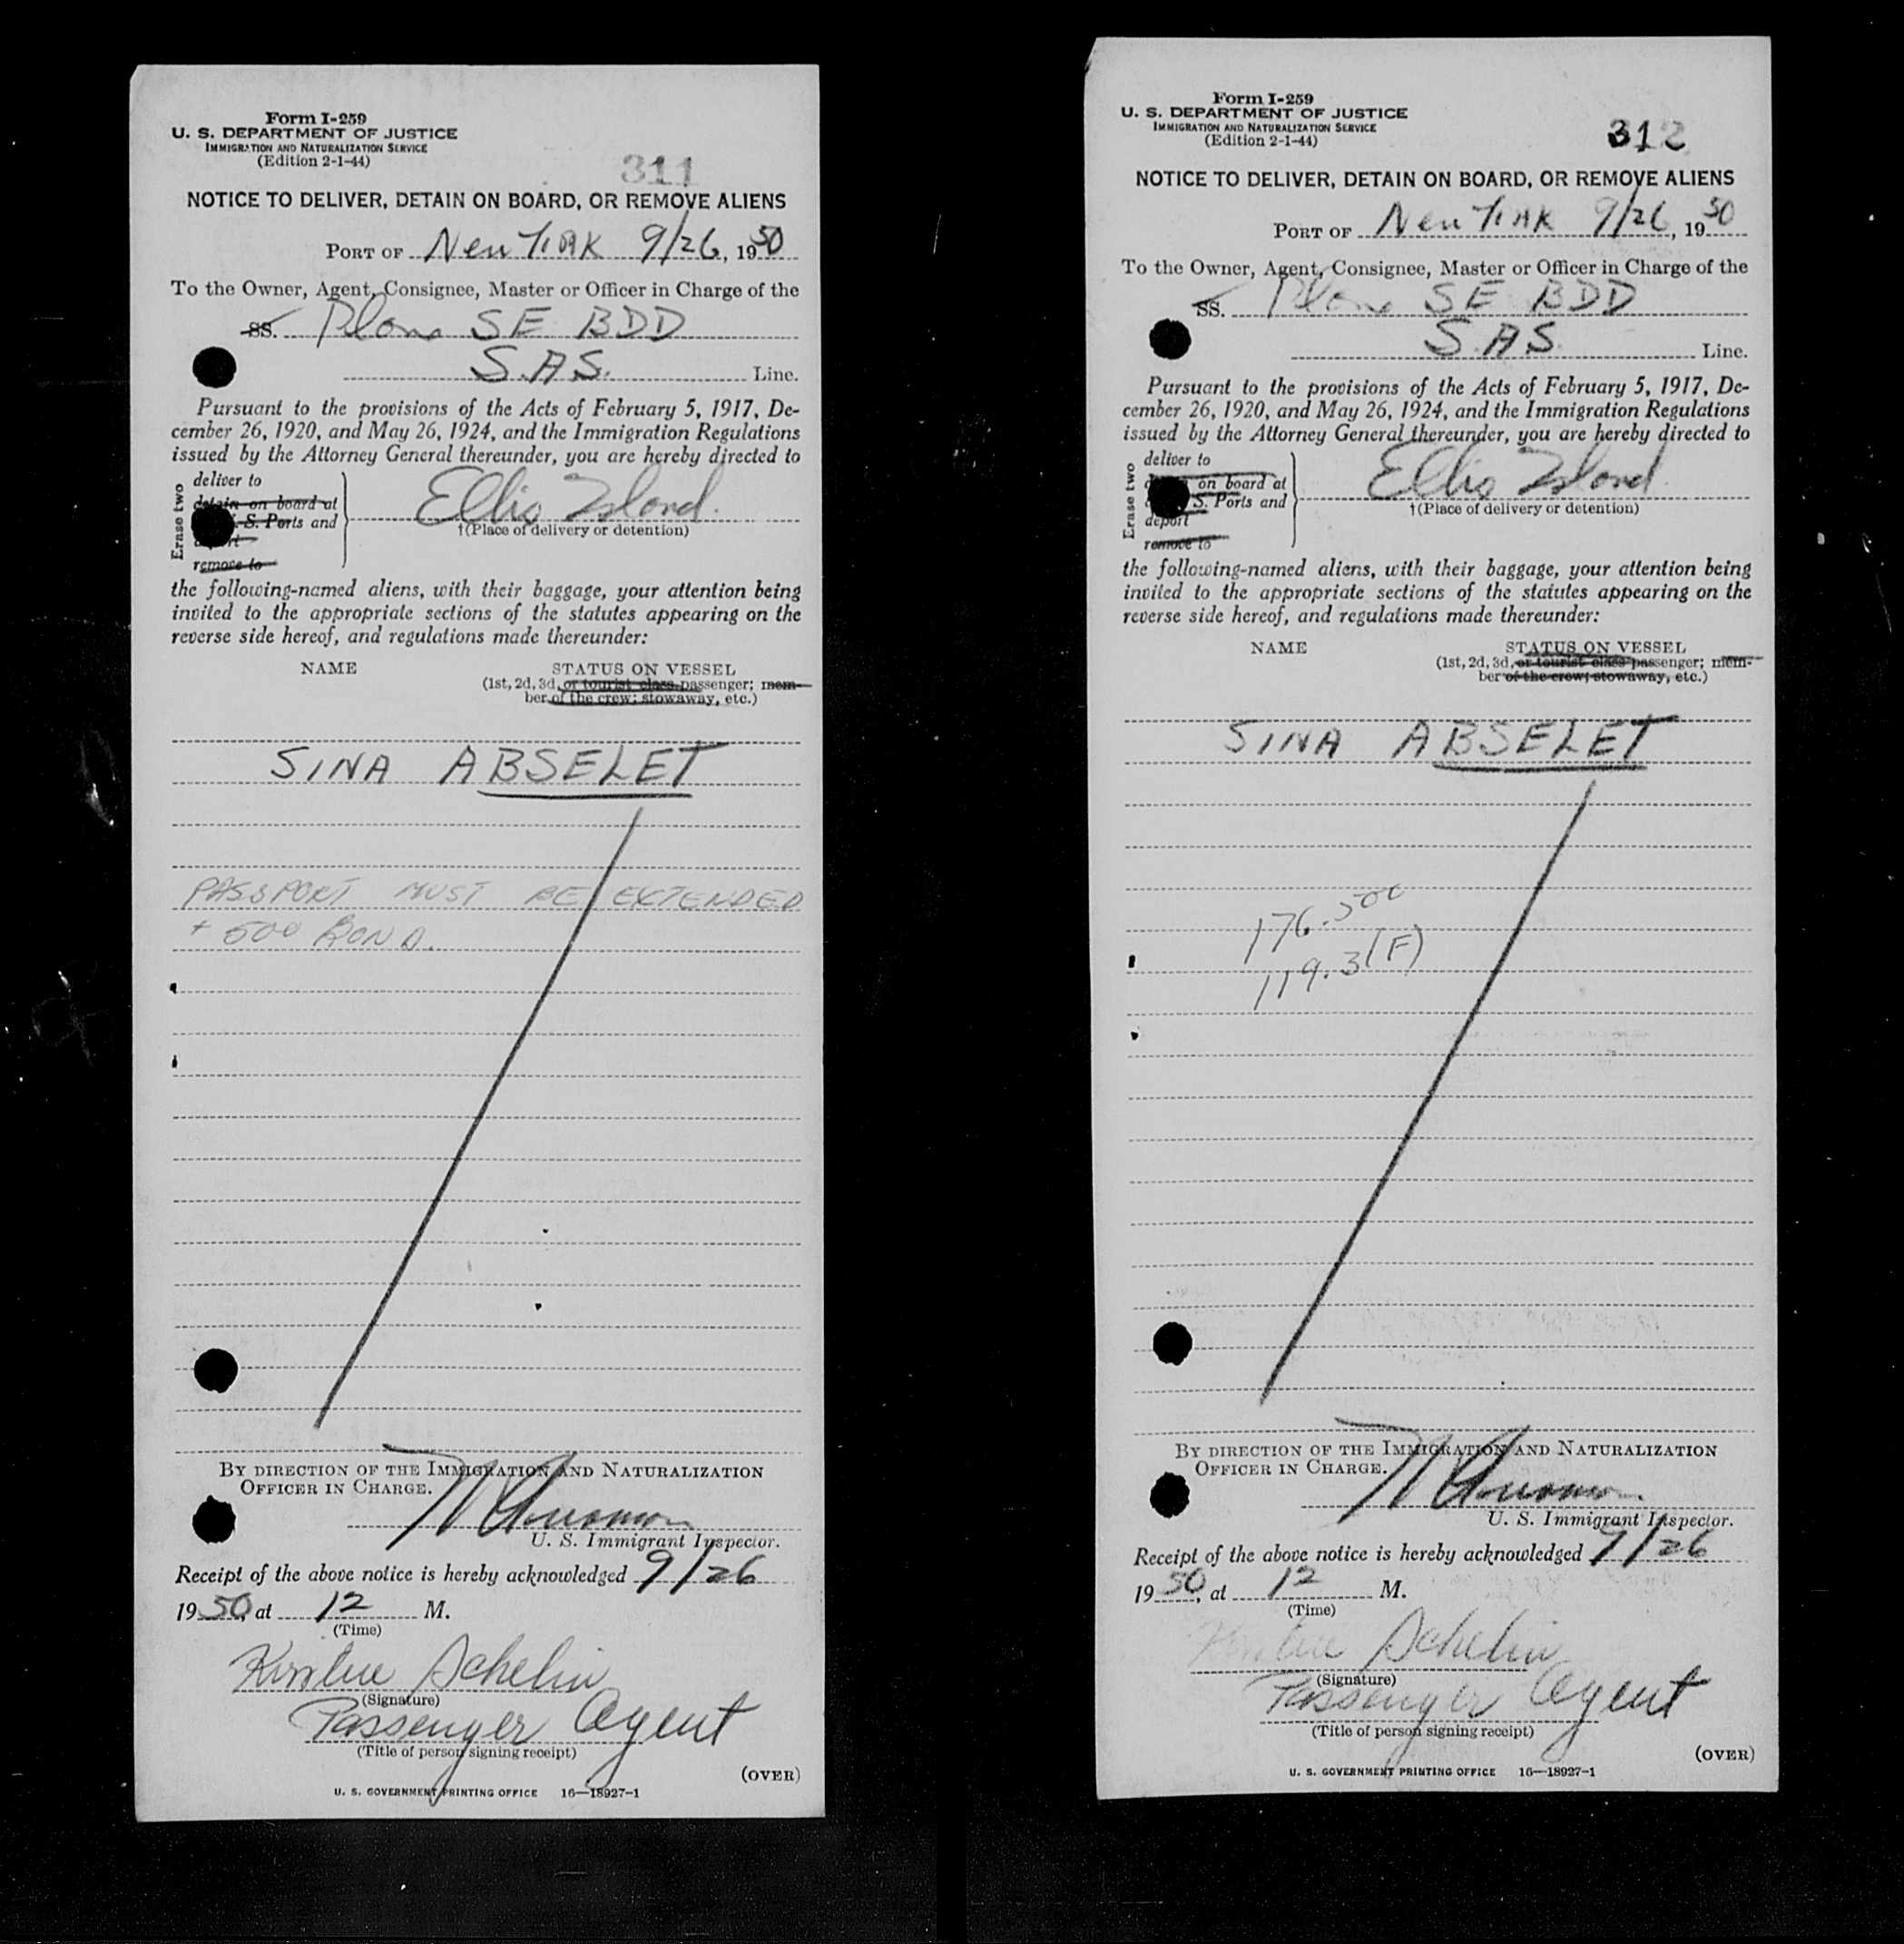 Form I-259
U. S. DEPARTMENT OF JUSTICE
IMMIGRATION AND NATURALIZATION SERVICE
(Edition 2-1-44)
311
NOTICE TO DELIVER, DETAIN ON BOARD, OR REMOVE ALIENS
PORT OF New York 9/26, 1950
To the Owner, Agent, Consignee, Master or Officer in Charge of the
SS. Plane SE BDD
S.A.S. Line.
Pursuant to the provisions of the Acts of February 5, 1917, De-
cember 26, 1920, and May 26, 1924, and the Immigration Regulations
issued by the Attorney General thereunder, you are hereby directed to
Erase two
deliver to
detain on board at
S. Ports and
remove to
Ellis Island.
†(Place of delivery or detention)
the following-named aliens, with their baggage, your attention being
invited to the appropriate sections of the statutes appearing on the
reverse side hereof, and regulations made thereunder:
NAME STATUS ON VESSEL
(1st, 2d, 3d, or tourist class passenger; mem-
ber of the crew; stowaway, etc.)
SINA ABSELET
PASSPORT MUST BE EXTENDED
+ 500 BOND.
BY DIRECTION OF THE IMMIGRATION AND NATURALIZATION
OFFICER IN CHARGE.
U. S. Immigrant Inspector.
Receipt of the above notice is hereby acknowledged 9/26
1950, at 12 M.
(Time)
Schelin
(Signature)
Passenger Agent
(Title of person signing receipt)
(OVER)
U. S. GOVERNMENT PRINTING OFFICE 16—18927-1
Form I-259
U. S. DEPARTMENT OF JUSTICE
IMMIGRATION AND NATURALIZATION SERVICE
(Edition 2-1-44)
312
NOTICE TO DELIVER, DETAIN ON BOARD, OR REMOVE ALIENS
PORT OF New York 9/26, 1950
To the Owner, Agent, Consignee, Master or Officer in Charge of the
SS. Plane SE BDD
S.A.S. Line.
Pursuant to the provisions of the Acts of February 5, 1917, De-
cember 26, 1920, and May 26, 1924, and the Immigration Regulations
issued by the Attorney General thereunder, you are hereby directed to
Erase two
deliver to
on board at
S. Ports and
deport
remove to
Ellis Island
†(Place of delivery or detention)
the following-named aliens, with their baggage, your attention being
invited to the appropriate sections of the statutes appearing on the
reverse side hereof, and regulations made thereunder:
NAME STATUS ON VESSEL
(1st, 2d, 3d, or tourist class passenger; mem-
ber of the crew; stowaway, etc.)
SINA ABSELET
176.500
119.3(F)
BY DIRECTION OF THE IMMIGRATION AND NATURALIZATION
OFFICER IN CHARGE.
U. S. Immigrant Inspector.
Receipt of the above notice is hereby acknowledged 9/26
1950, at 12 M.
(Time)
Schelin
(Signature)
Passenger Agent
(Title of person signing receipt)
(OVER)
U. S. GOVERNMENT PRINTING OFFICE 16—18927-1